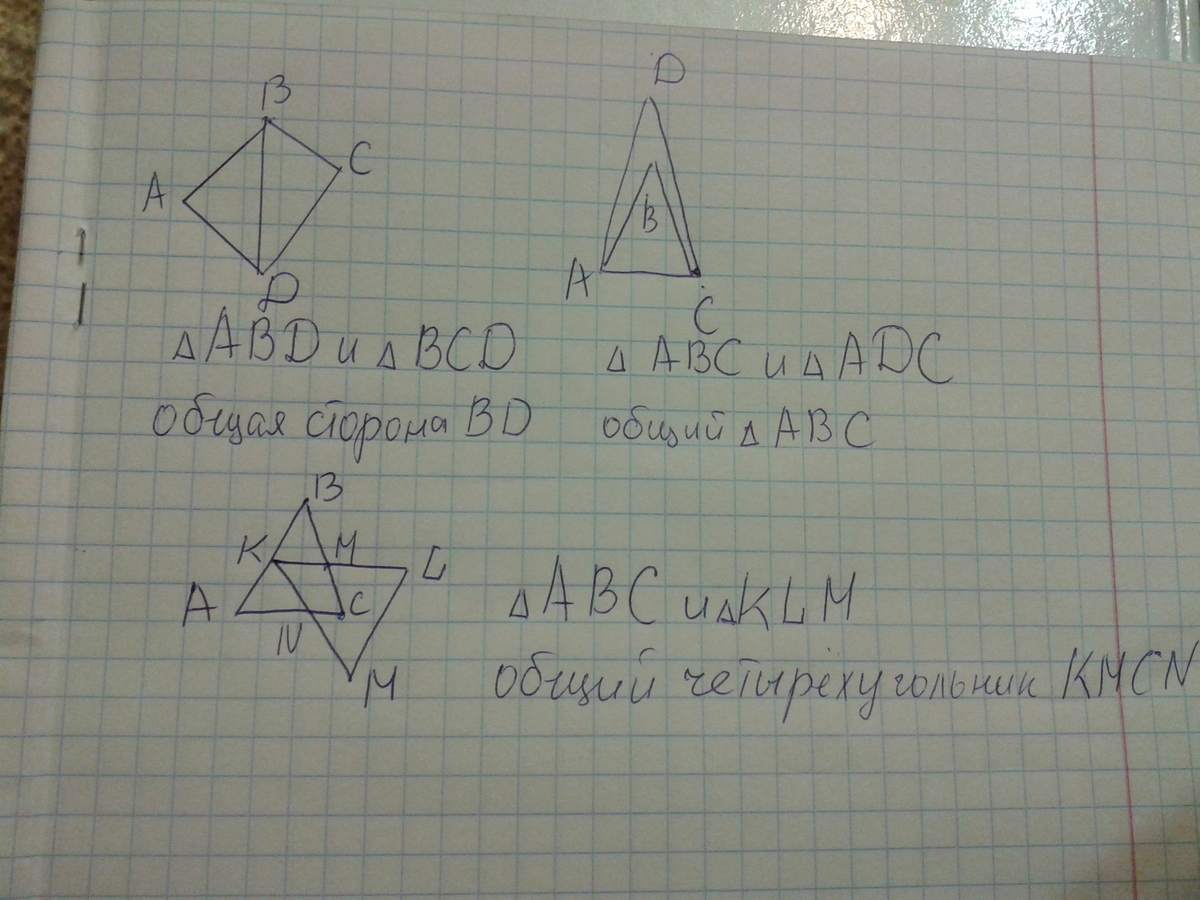 B
A
C
D
△ABD и △BCD
общая сторона BD
D
B
A
C
△ ABC и △ADC
общий △ ABC
B
K
M
L
A
C
N
M
△ABC и △KLM
общий четырёхугольник KMCN